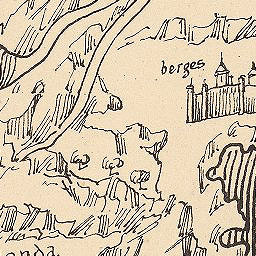 berges
anda